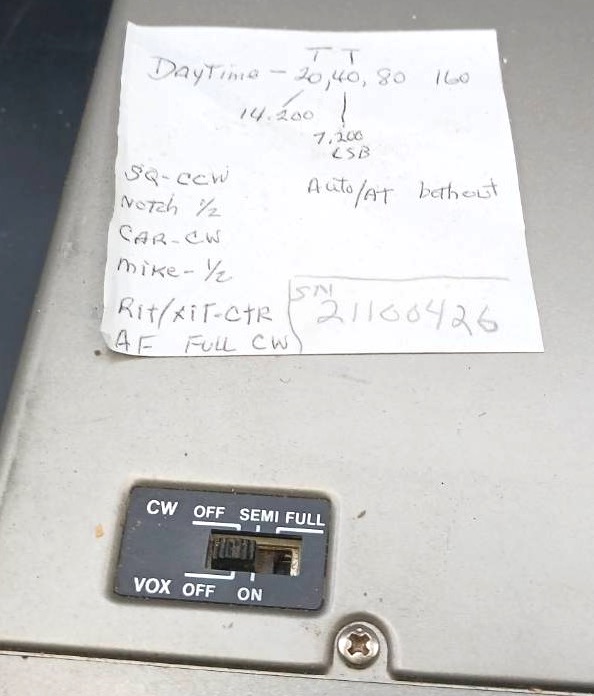 T T
DayTime - 20, 40, 80 160
14.200
7.200
LSB
SQ-CCW
Auto/AT both out
Notch 1/2
CAR-CW
mike- 1/2
Rit/XiT-CtR
SN
21100426
AF FULL CW
CW OFF SEMI FULL
VOX OFF ON